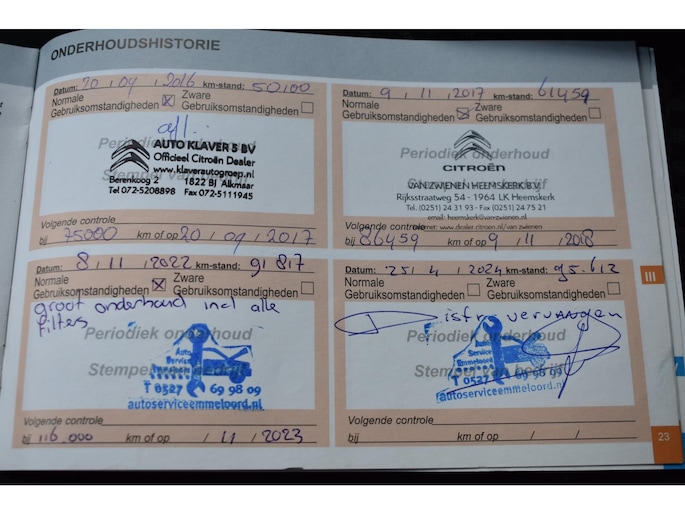 ONDERHOUDSHISTORIE
Datum: 20 / 09 / 2016 km-stand: 50.100
Normale Gebruiksomstandigheden Zware Gebruiksomstandigheden
Periodiek onderhoud
AUTO KLAVER 5 BV
Officieel Citroën Dealer
www.klaverautogroep.nl
Stempel van bedrijf
Berenkoog 2 1822 BJ Alkmaar
Tel 072-5208898 Fax 072-5111945
Volgende controle
bij 75000 km of op 20 / 09 / 2017
Datum: 9 / 11 / 2017 km-stand: 61459
Normale Gebruiksomstandigheden Zware Gebruiksomstandigheden
Periodiek onderhoud
CITROËN
Stempel van bedrijf
VAN ZWIENEN HEEMSKERK B.V.
Rijksstraatweg 54 - 1964 LK Heemskerk
Tel. (0251) 24 31 93 - Fax (0251) 24 75 21
email: heemskerk@van-zwienen.nl
internet: www.dealer.citroen.nl/van zwienen
Volgende controle
bij 86459 km of op 9 / 11 / 2018
Datum: 8 / 11 / 2022 km-stand: 91 817
Normale Gebruiksomstandigheden Zware Gebruiksomstandigheden
groot onderhoud incl alle
filters
Periodiek onderhoud
Auto
Service
Emmeloord
Stempel van bedrijf
T 0527 69 98 09
autoserviceemmeloord.nl
Volgende controle
bij 116.000 km of op / 11 / 2023
Datum: 25 / 4 / 2024 km-stand: 95.612
Normale Gebruiksomstandigheden Zware Gebruiksomstandigheden
Distr. vervangen
Periodiek onderhoud
Auto
Service
Emmeloord
Stempel van bedrijf
T 0527 69 98 09
autoserviceemmeloord.nl
Volgende controle
bij km of op / /
III
23